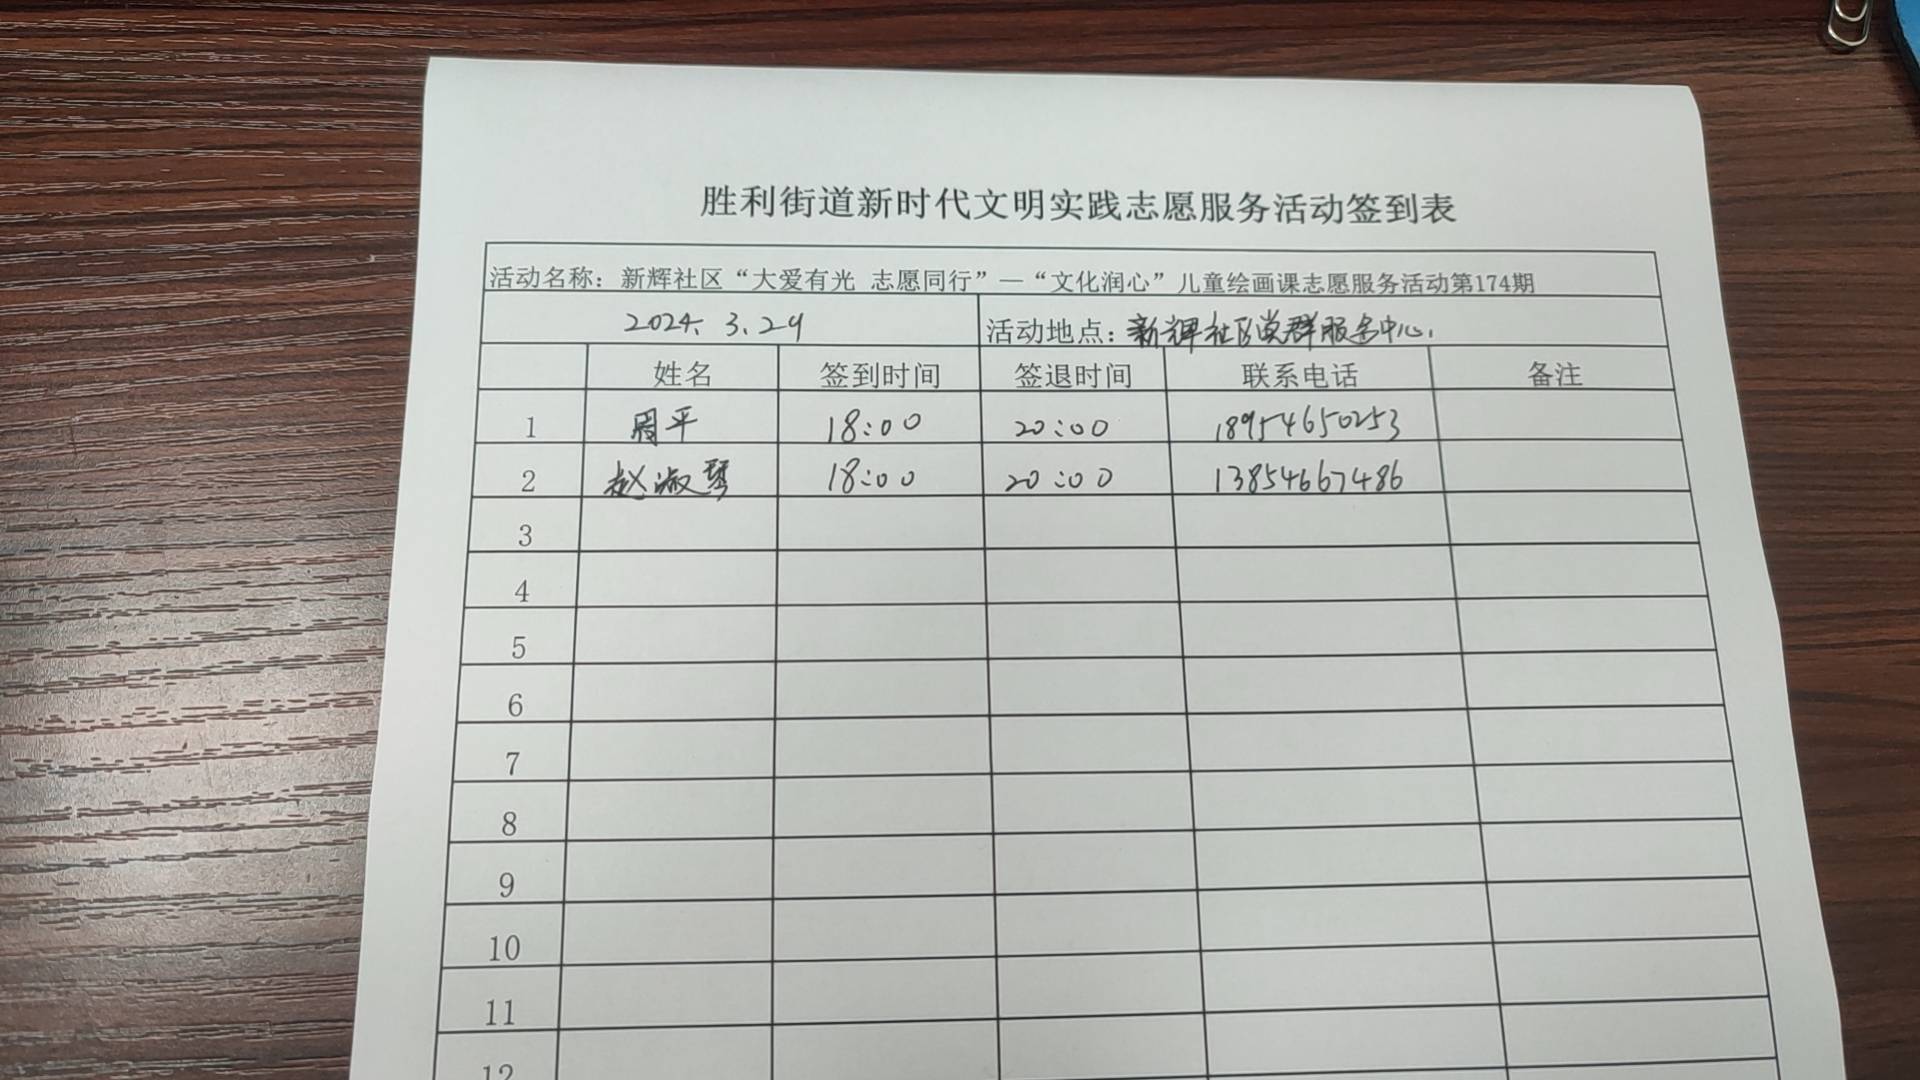 胜利街道新时代文明实践志愿服务活动签到表
活动名称：新辉社区“大爱有光 志愿同行”—“文化润心”儿童绘画课志愿服务活动第174期
2024.3.29 活动地点：新辉社区党群服务中心.
姓名 签到时间 签退时间 联系电话 备注
1 周平 18:00 20:00 18954650253
2 赵淑琴 18:00 20:00 13854667486
3
4
5
6
7
8
9
10
11
12